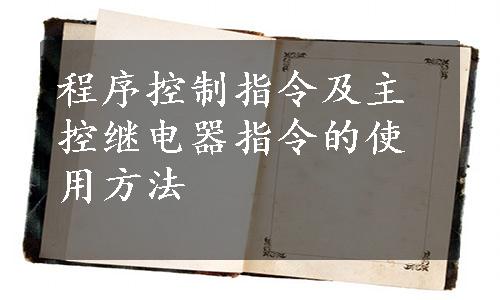 程序控制指令及主
控继电器指令的使
用方法